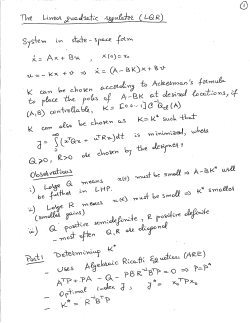 ①
The Linear quadratic regulator (LQR)
System in state-space form
ẋ = Ax + Bu , x(0)=x₀
u = -Kx + v ⇒ ẋ = (A-BK)x + Bv
K can be chosen according to Ackerman's formula
to place the poles of A-BK at desired locations, if
(A,B) controllable, K = [0 0 … 1] 𝒞⁻¹ (A)
K can also be chosen as K=K* such that
J = ∫₀^∞ (xᵀQx + uᵀRu)dt is minimized, where
Q≥0, R>0 are chosen by the designer.
Observations
i) Large Q means x(t) must be small ⇒ A-BK* will
be further in LHP.
ii) Large R means u(t) must be small ⇒ K* smaller
(smaller gains)
iii) Q positive semidefinite, R positive definite
- most often Q, R are diagonal
Part 1 Determining K*
- Uses Algebraic Ricatti Equation (ARE)
AᵀP + PA - Q - PBR⁻¹BᵀP = 0 ⇒ P=P*
- Optimal index J, J* = x₀ᵀPx₀
- K* = R⁻¹BᵀP